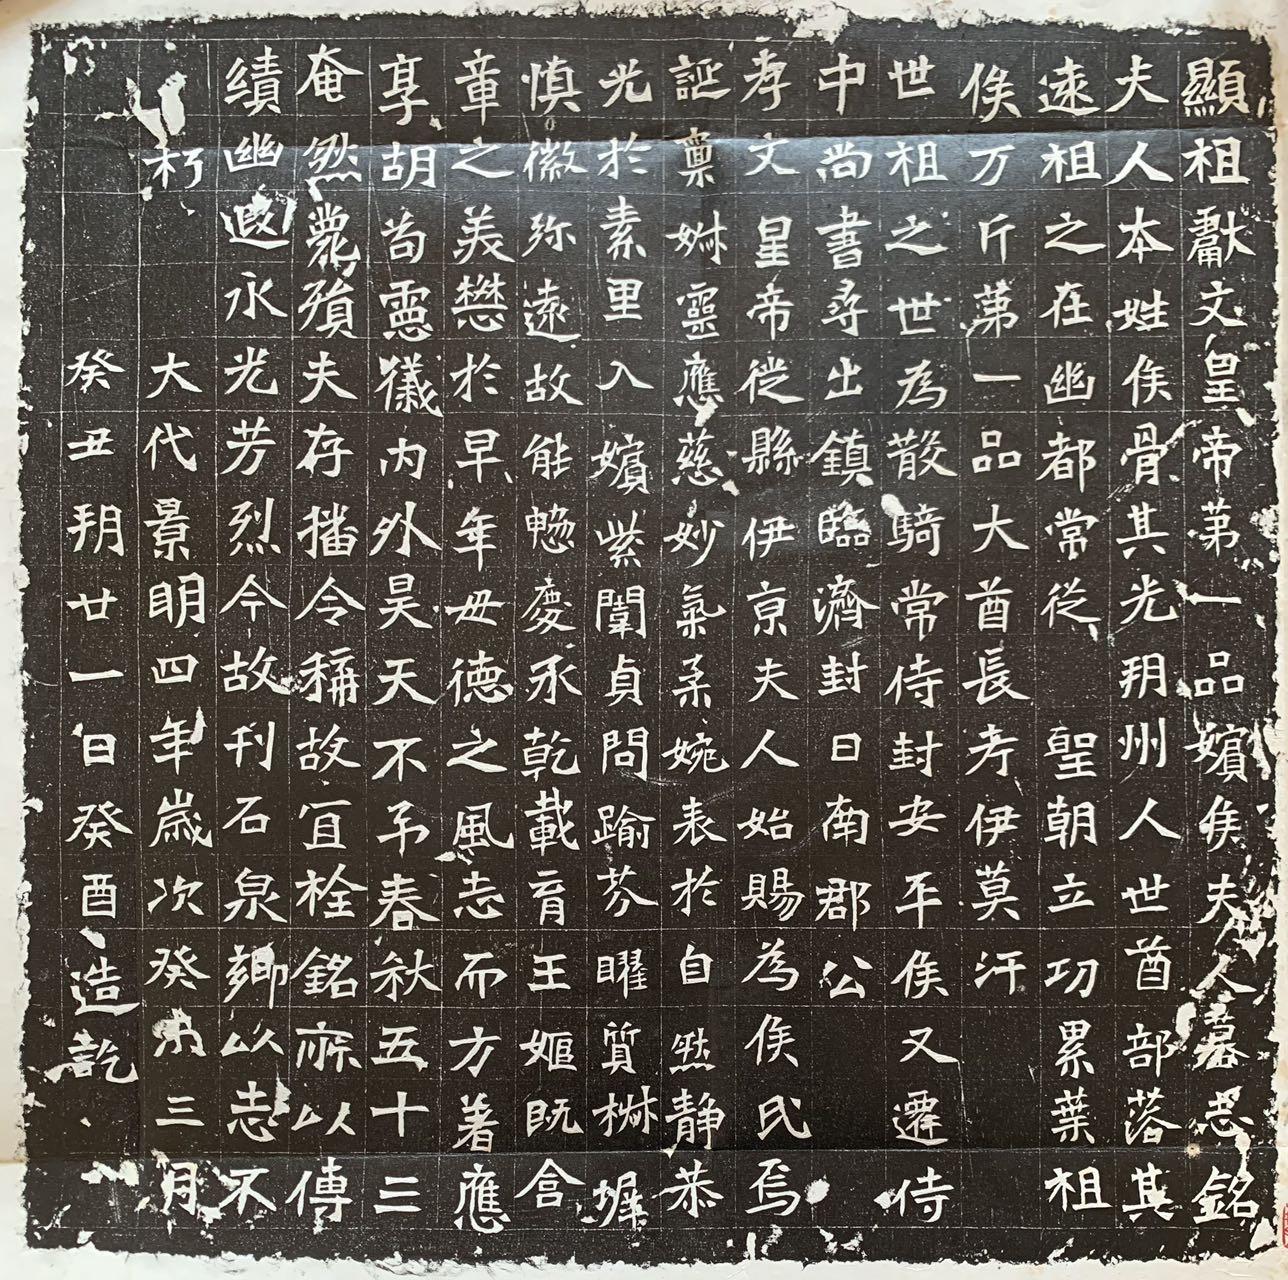 顯祖獻文皇帝第一品嬪侯夫人墓志銘
夫人本姓侯骨其先朔州人世酋部落其
遠祖之在幽都常從 聖朝立功累葉祖
俟万斤第一品大酋長考伊莫汗
世祖之世為散騎常侍封安平侯又遷侍
中尚書尋出鎮臨濟封日南郡公
孝文皇帝徙縣伊京夫人始賜為侯氏焉
誕稟姝靈應慈妙氣柔婉表於自然靜恭
光於素里入嬪紫闈貞問踰芬曜質椒墀
慎徽弥遠故能愍慶承乾載育王姬既含
章之美懋於早年毋德之風志而方著應
享胡耇霝儀內外昊天不弔春秋五十三
奄然薨殞夫存播令稱故宜栓銘以傳
績幽遐永光芳烈今故刊石泉鄉以志不
朽 大代景明四年歲次癸未三月
癸丑朔廿一日癸酉造訖